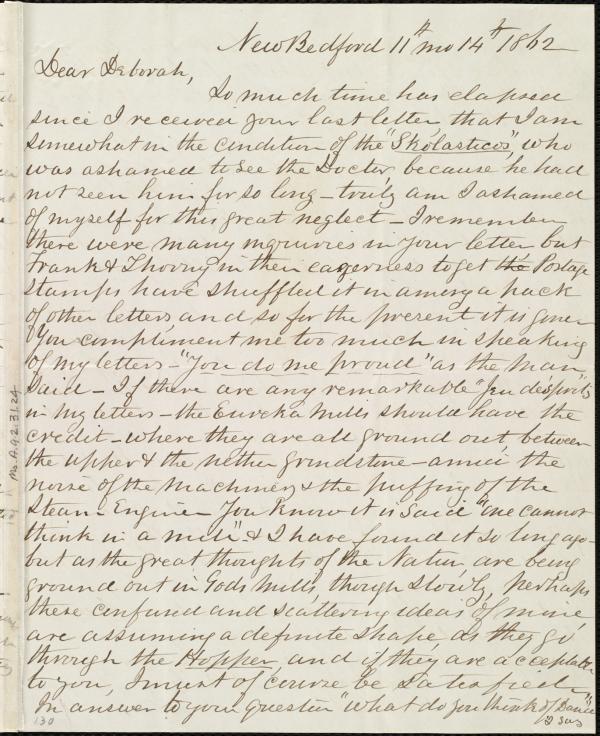 New Bedford 11th mo 14th 1862
Dear Deborah,
So much time has elapsed
since I received your last letter that I am
somewhat in the condition of the "Skolasticos", who
was ashamed to see the Doctor, because he had
not seen him for so long - truly am I ashamed
of myself for this great neglect - I remember
there were many inquiries in your letter but
Frank & Thorny in their eagerness to get the Postage
Stamps have shuffled it in among a pack
of other letters and so for the present it is gone
You compliment me too much in speaking
of my letters - "You do me proud" as the man
said - If there are any remarkable "Jeu desprits
in my letters - the Eureka Mills should have the
credit - where they are all ground out, between
the upper & the nether grindstone - amid the
noise of the Machinery & the puffing of the
Steam-Engine You Know it is said "one cannot
think in a mill" & I have found it so long ago -
but as the great thoughts of the Nation, are being
ground out in Gods Mills, though Slowly, perhaps
these confused and scattering ideas of mine,
are assuming a definite shape, as they go
through the Hopper, and if they are acceptable
to you, I must of course be Satisfied
In answer to your question "what do you think of
130
Ms.A.9.2.31.24